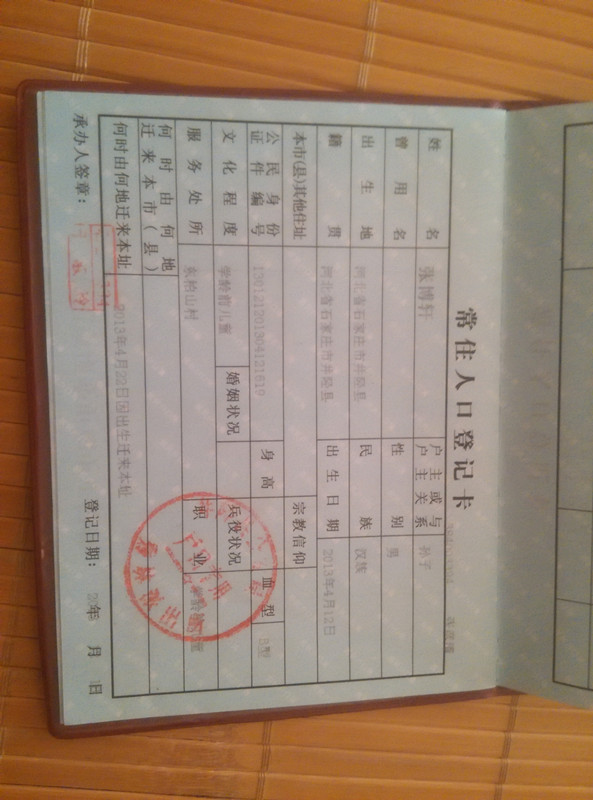 常住人口登记卡
姓名 张博轩 户主或与户主关系 孙子
曾用名 性别 男
出生地 河北省石家庄市井陉县 民族 汉族
籍贯 河北省石家庄市井陉县 出生日期 2013年4月12日
本市(县)其他住址 宗教信仰
公民身份证件编号 130121201304121619 身高 血型 B型
文化程度 学龄前儿童 婚姻状况 兵役状况
服务处所 东柏山村 职业 学龄前儿童
何时由何地迁来本市(县)
何时由何地迁来本址 2013年4月22日因出生迁来本址
承办人签章: 登记日期: 年 月 日